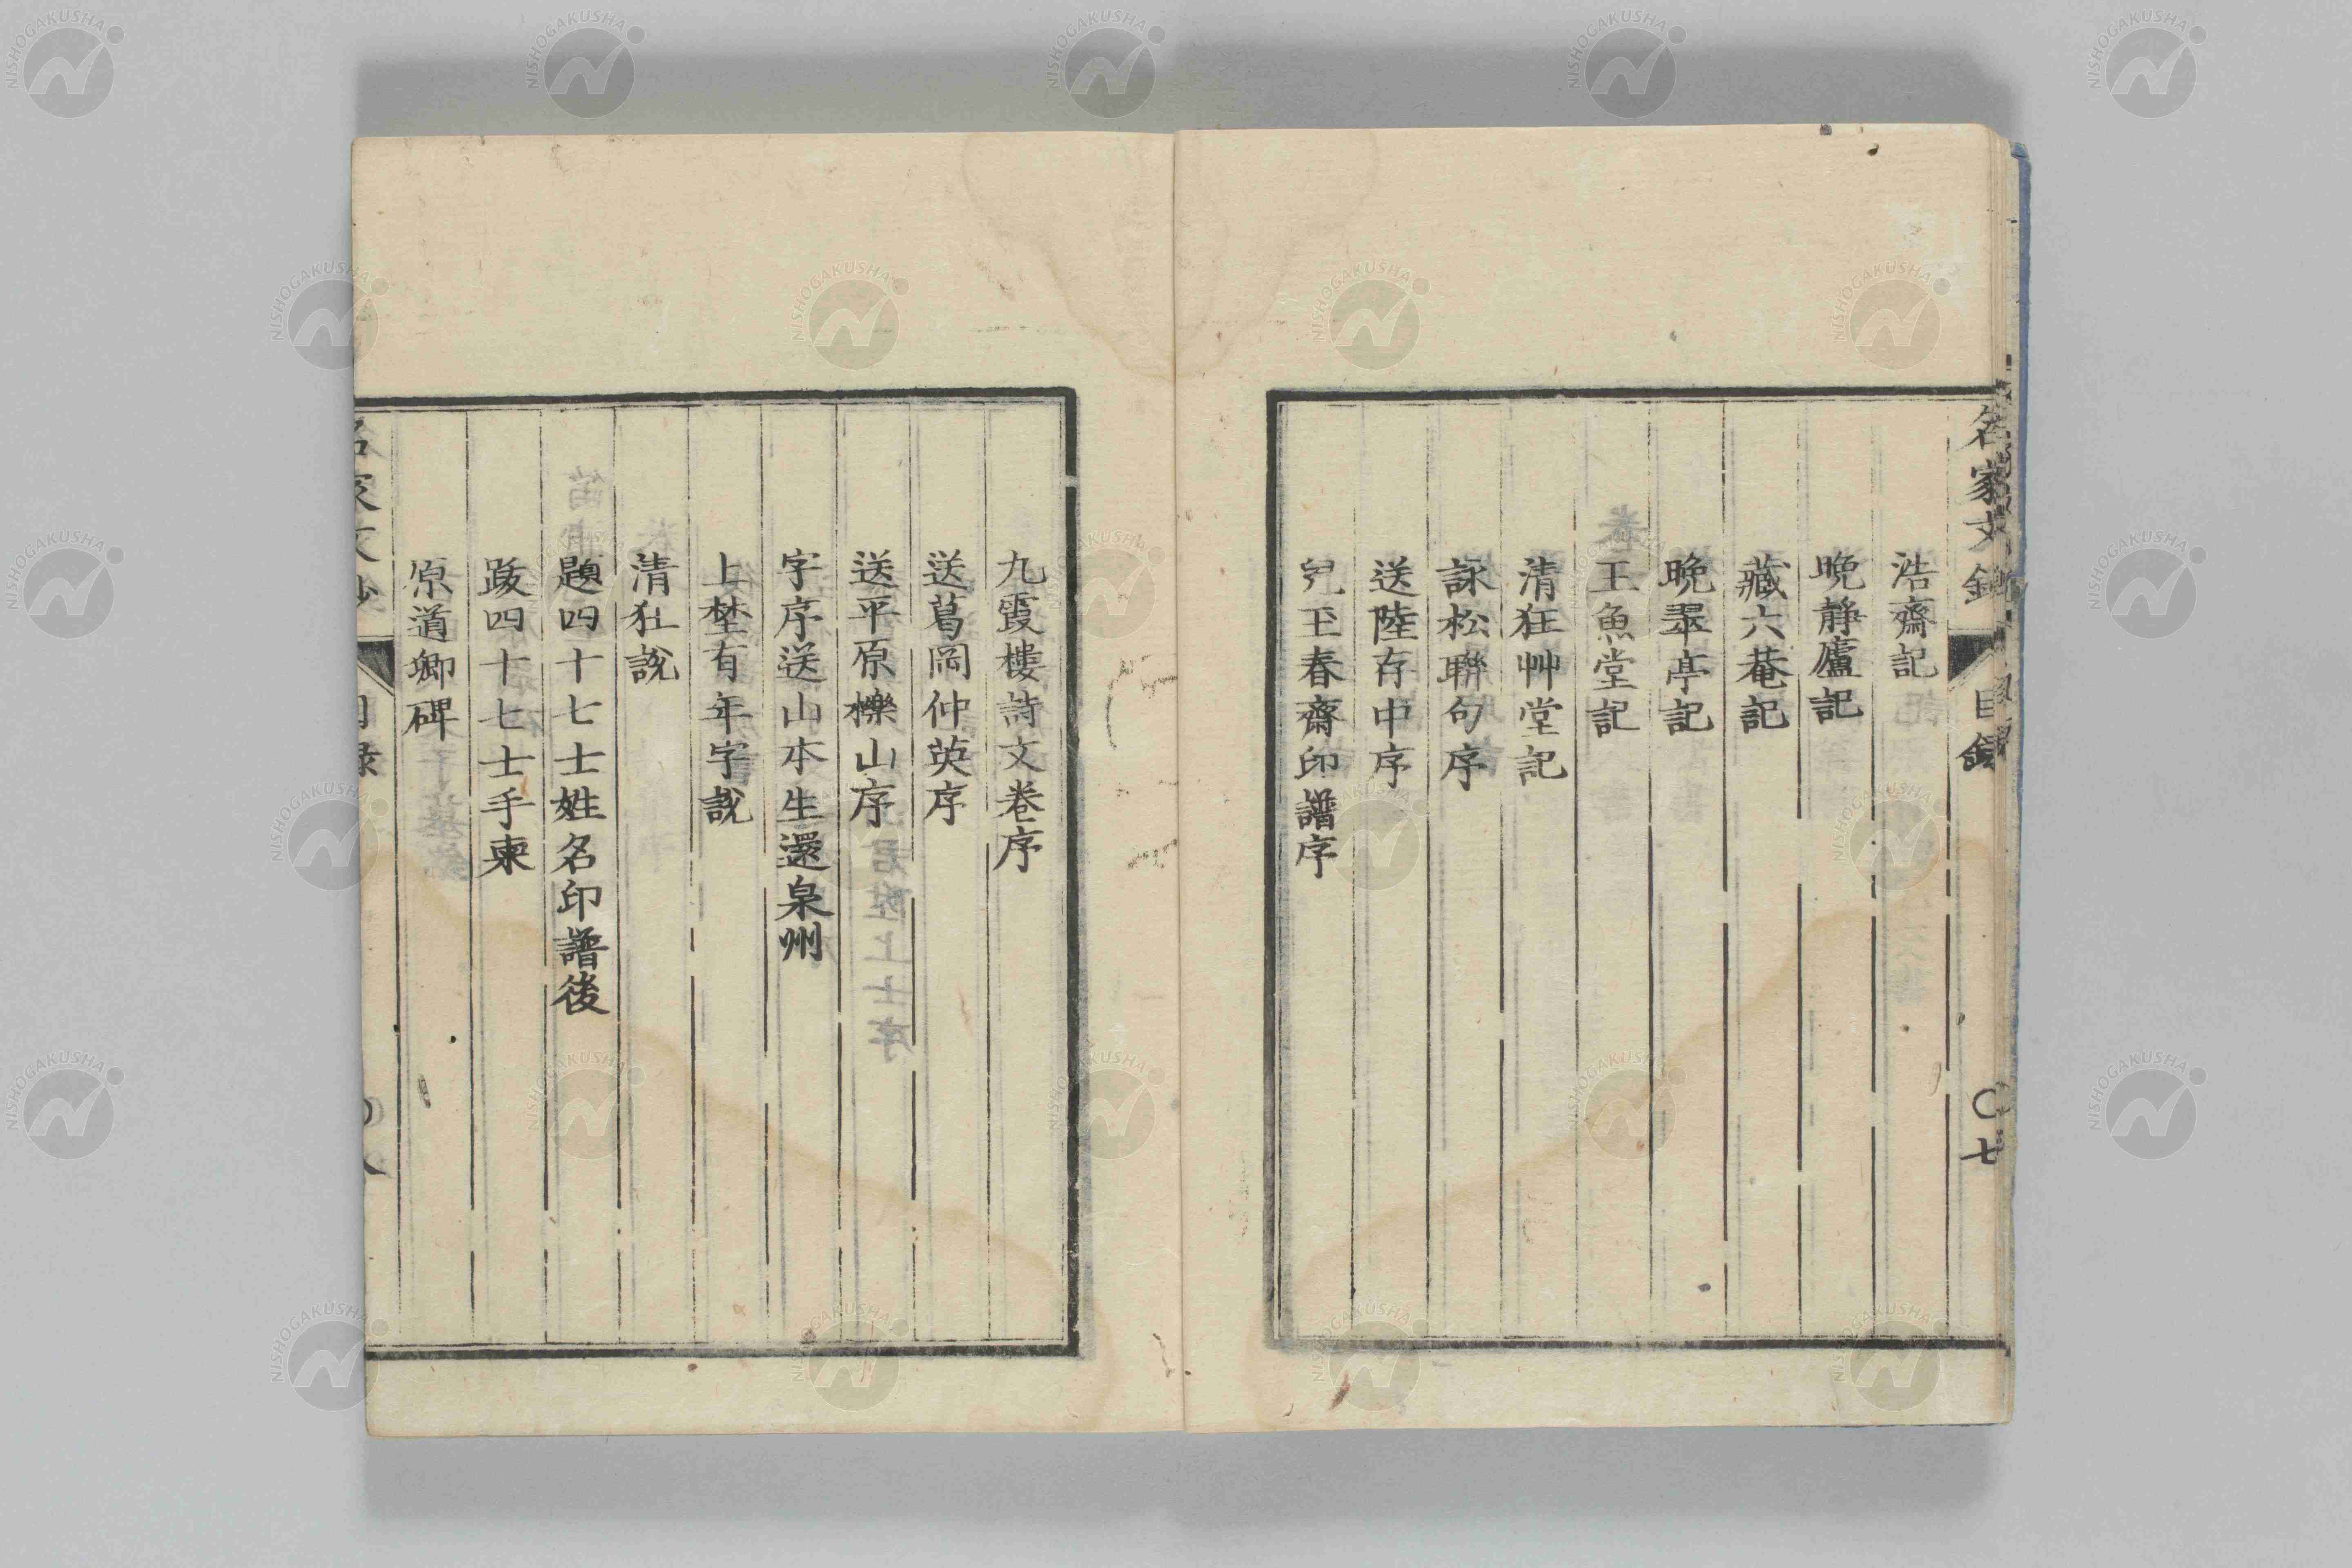 名家文鈔 目錄 〇七
浩齋記
晚靜廬記
藏六菴記
晚翠亭記
王魚堂記
清狂艸堂記
詠松聯句序
送陸存中序
兒玉春齋印譜序
九霞樓詩文卷序
送葛岡仲英序
送平原櫟山序
字序送山本生還泉州
上埜有年字說
清狂說
題四十七士姓名印譜後
跋四十七士手柬
原道卿碑
名家文鈔 目錄 〇八
NISHOGAKUSHA